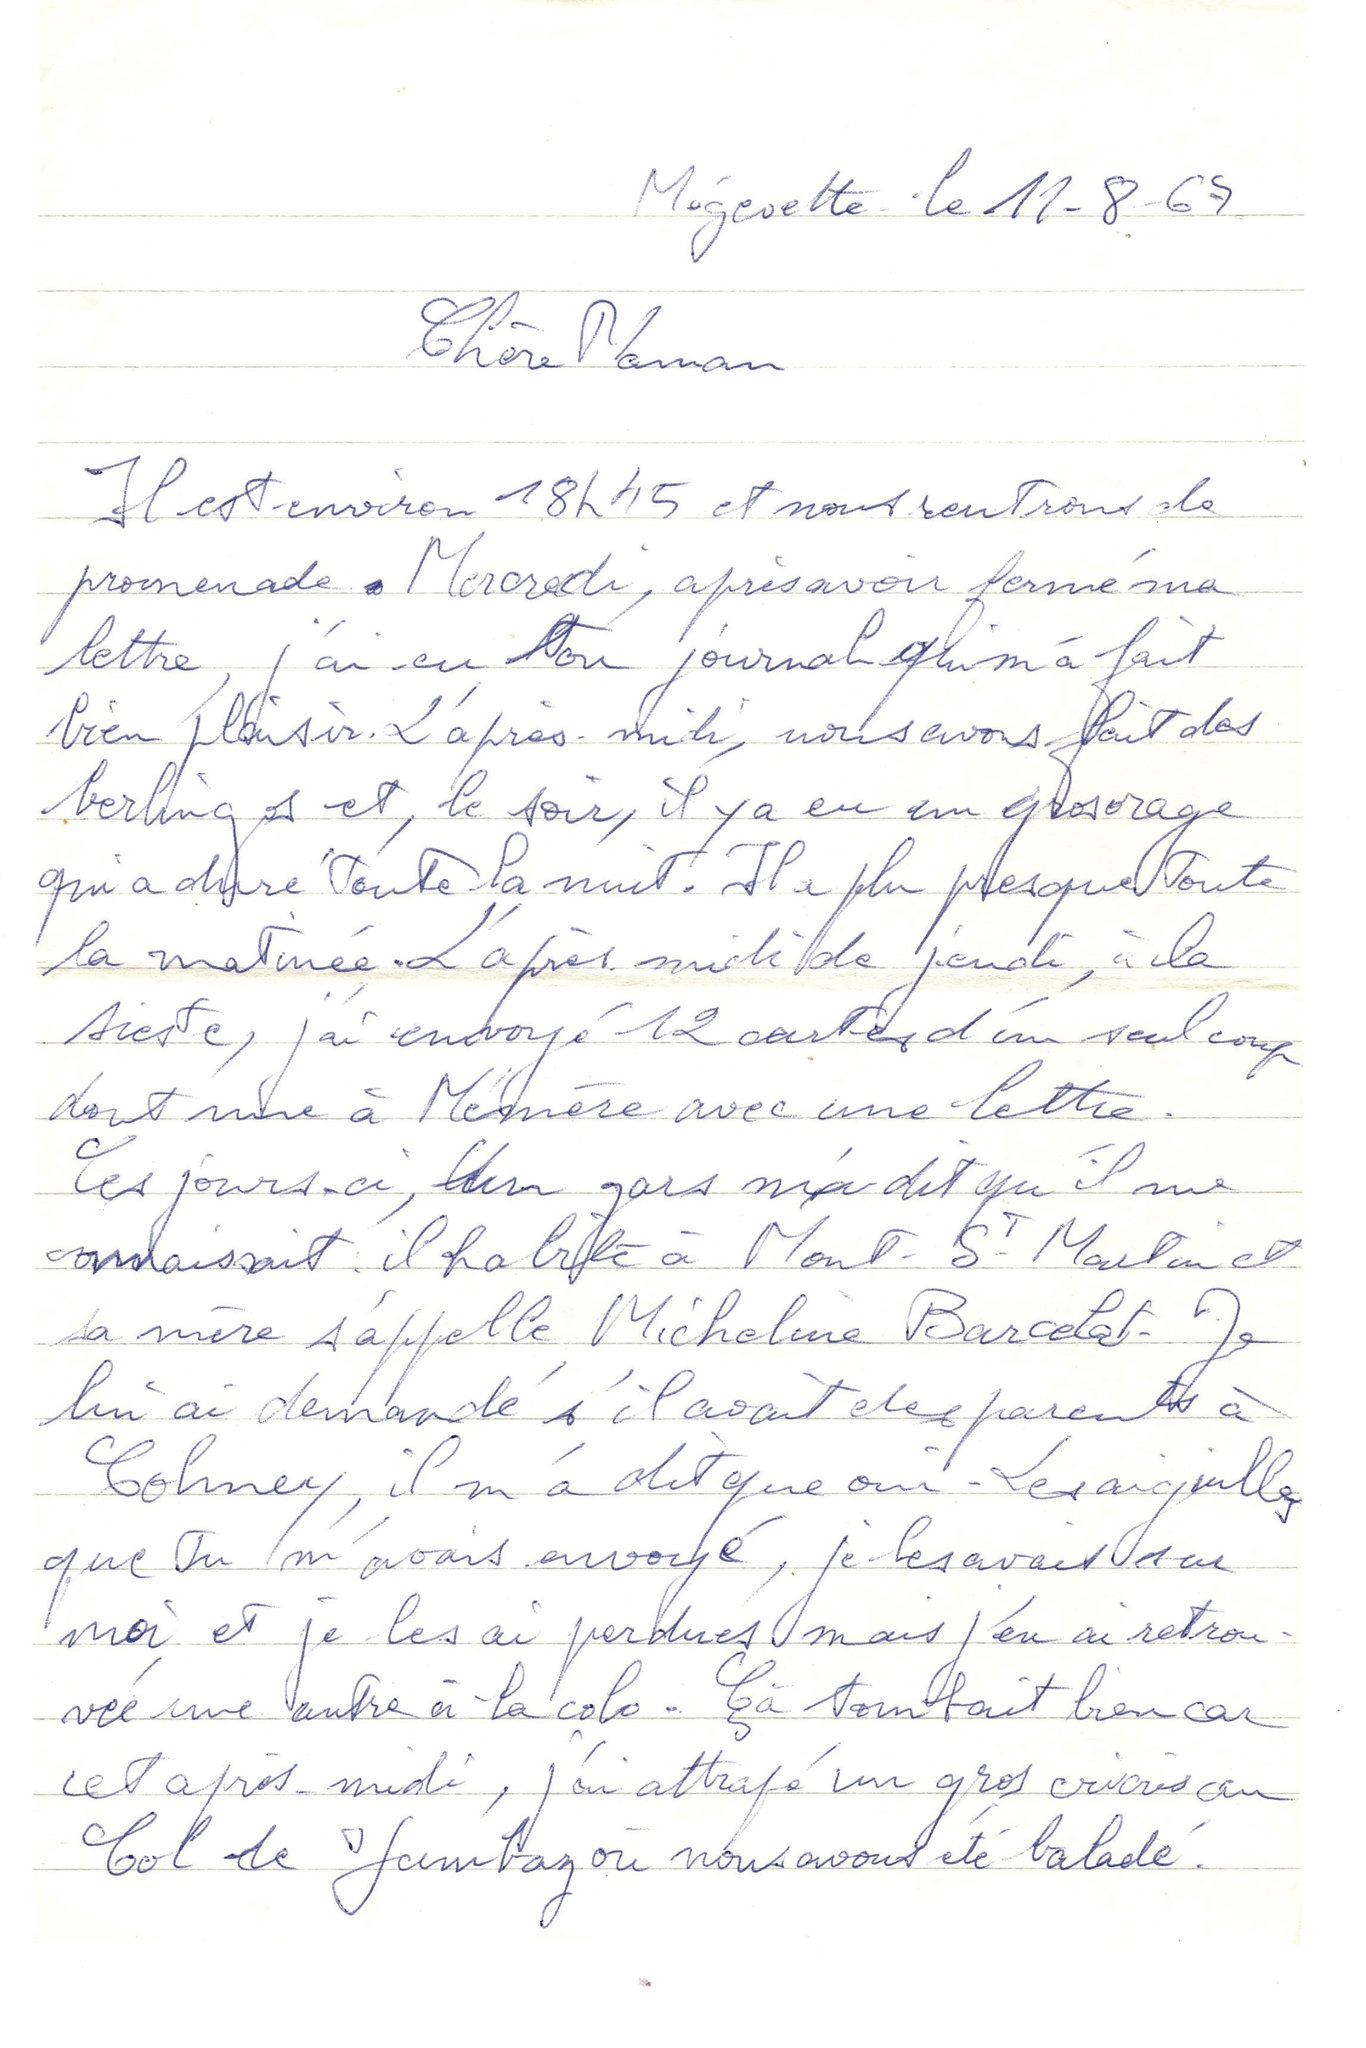 Mégevette le 11-8-67
Chère Maman
Il est environ 18h45 et nous rentrons de
promenade. Mercredi, après avoir fermé ma
lettre, j'ai eu ton journal qui m'a fait
bien plaisir. L'après-midi, nous avons fait des
berlingos et, le soir, il y a eu un gros orage
qui a duré toute la nuit. Il a plu presque toute
la matinée. L'après-midi de jeudi, à la
sieste, j'ai envoyé 12 cartes d'un seul coup
dont une à Mémère avec une lettre.
Ces jours-ci, un gars m'a dit qu'il me
connaissait : il habite à Mont-St-Martin et
sa mère s'appelle Micheline Barcelat. Je
lui ai demandé s'il avait des parents à
Colmey, il m'a dit que oui - Les aiguilles
que tu m'avais envoyé, je les avais sur
moi et je les ai perdues mais j'en ai retrou-
vée une autre à la colo. Çà tombait bien car
cet après-midi, j'ai attrapé un gros cricris au
Col de Jambaz où nous avons été baladé.